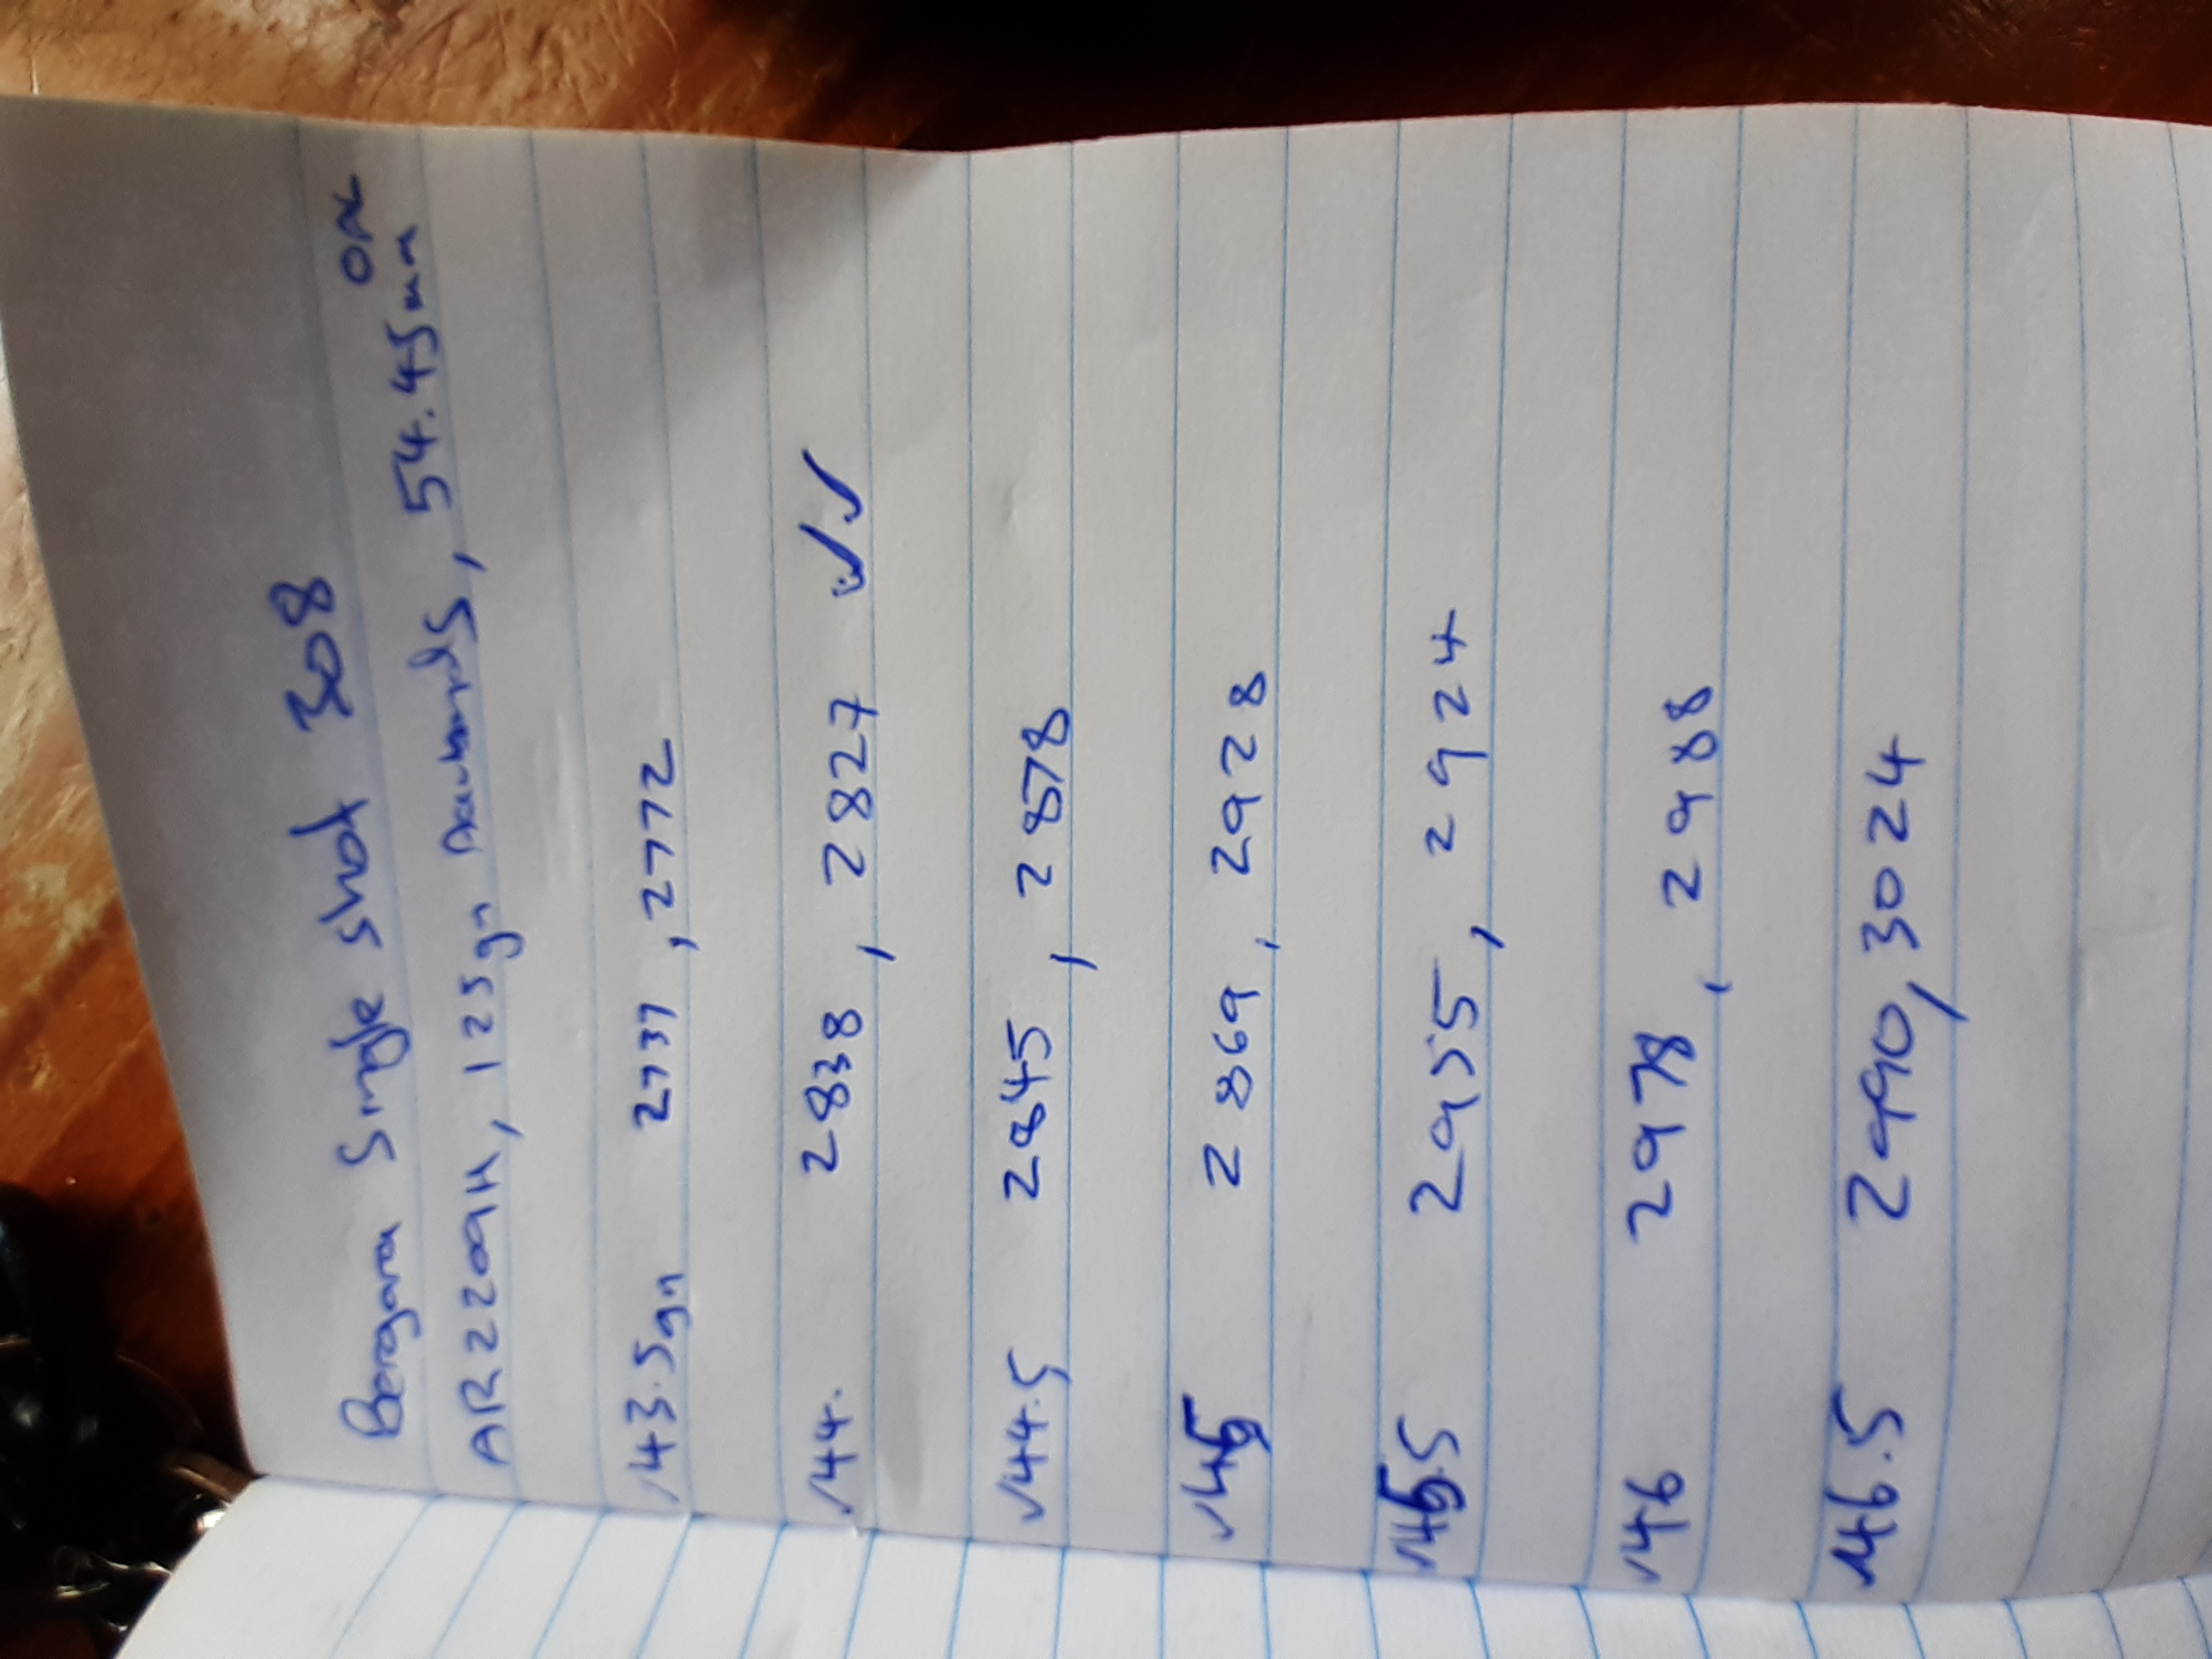 Bergara Single shot 308
OAL
AR2209H, 125gn Accubonds, 54.45mm
✓43.5gn 2737, 2772
✓44. 2838, 2827 ✓✓
✓44.5 2845, 2878
✓45 2869, 2928
✓45.5 2955, 2924
✓46 2978, 2988
✓46.5 2990, 3024